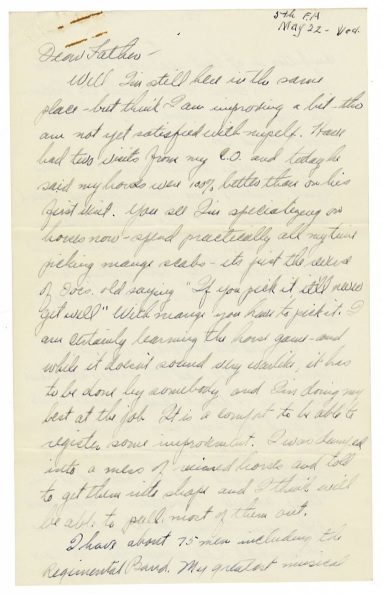 5th F.A.
May 22 - Wed.
Dear Father -
Well I'm still here in the same
place - but think I am improving a bit - tho
am not yet satisfied with myself. Have
had two visits from my C.O. and today he
said my horses were 100% better than on his
first visit. You see I'm specializing on
horses now - spend practically all my time
picking mange scabs - its just the
of old saying "If you pick it it'll never
get well" With mange you have to pick it. I
am certainly learning the horse game - and
while it doesn't sound very warlike, it has
to be done by somebody and I'm doing my
best at the job. It is a comfort to be able to
register some improvement. I was dumped
into a mess of horses and told
to get them into shape and I think will
be able to pull most of them out.
I have about 75 men including the
Regimental Band. My greatest musical